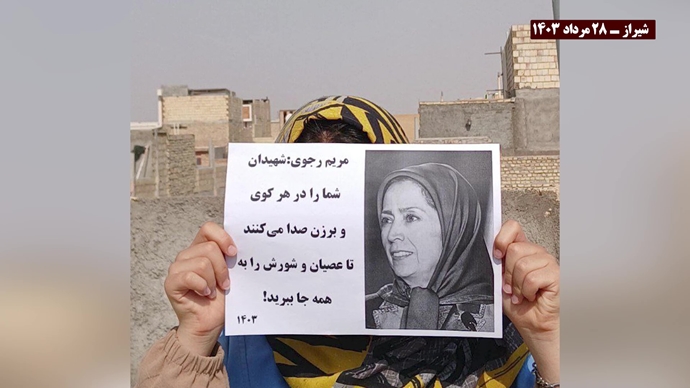 شیراز ــ ۲۸ مرداد ۱۴۰۳
مریم رجوی:شهیدان
شما را در هر کوی
و برزن صدا می‌کنند
تا عصیان و شورش را به
همه جا ببرید!
۱۴۰۳